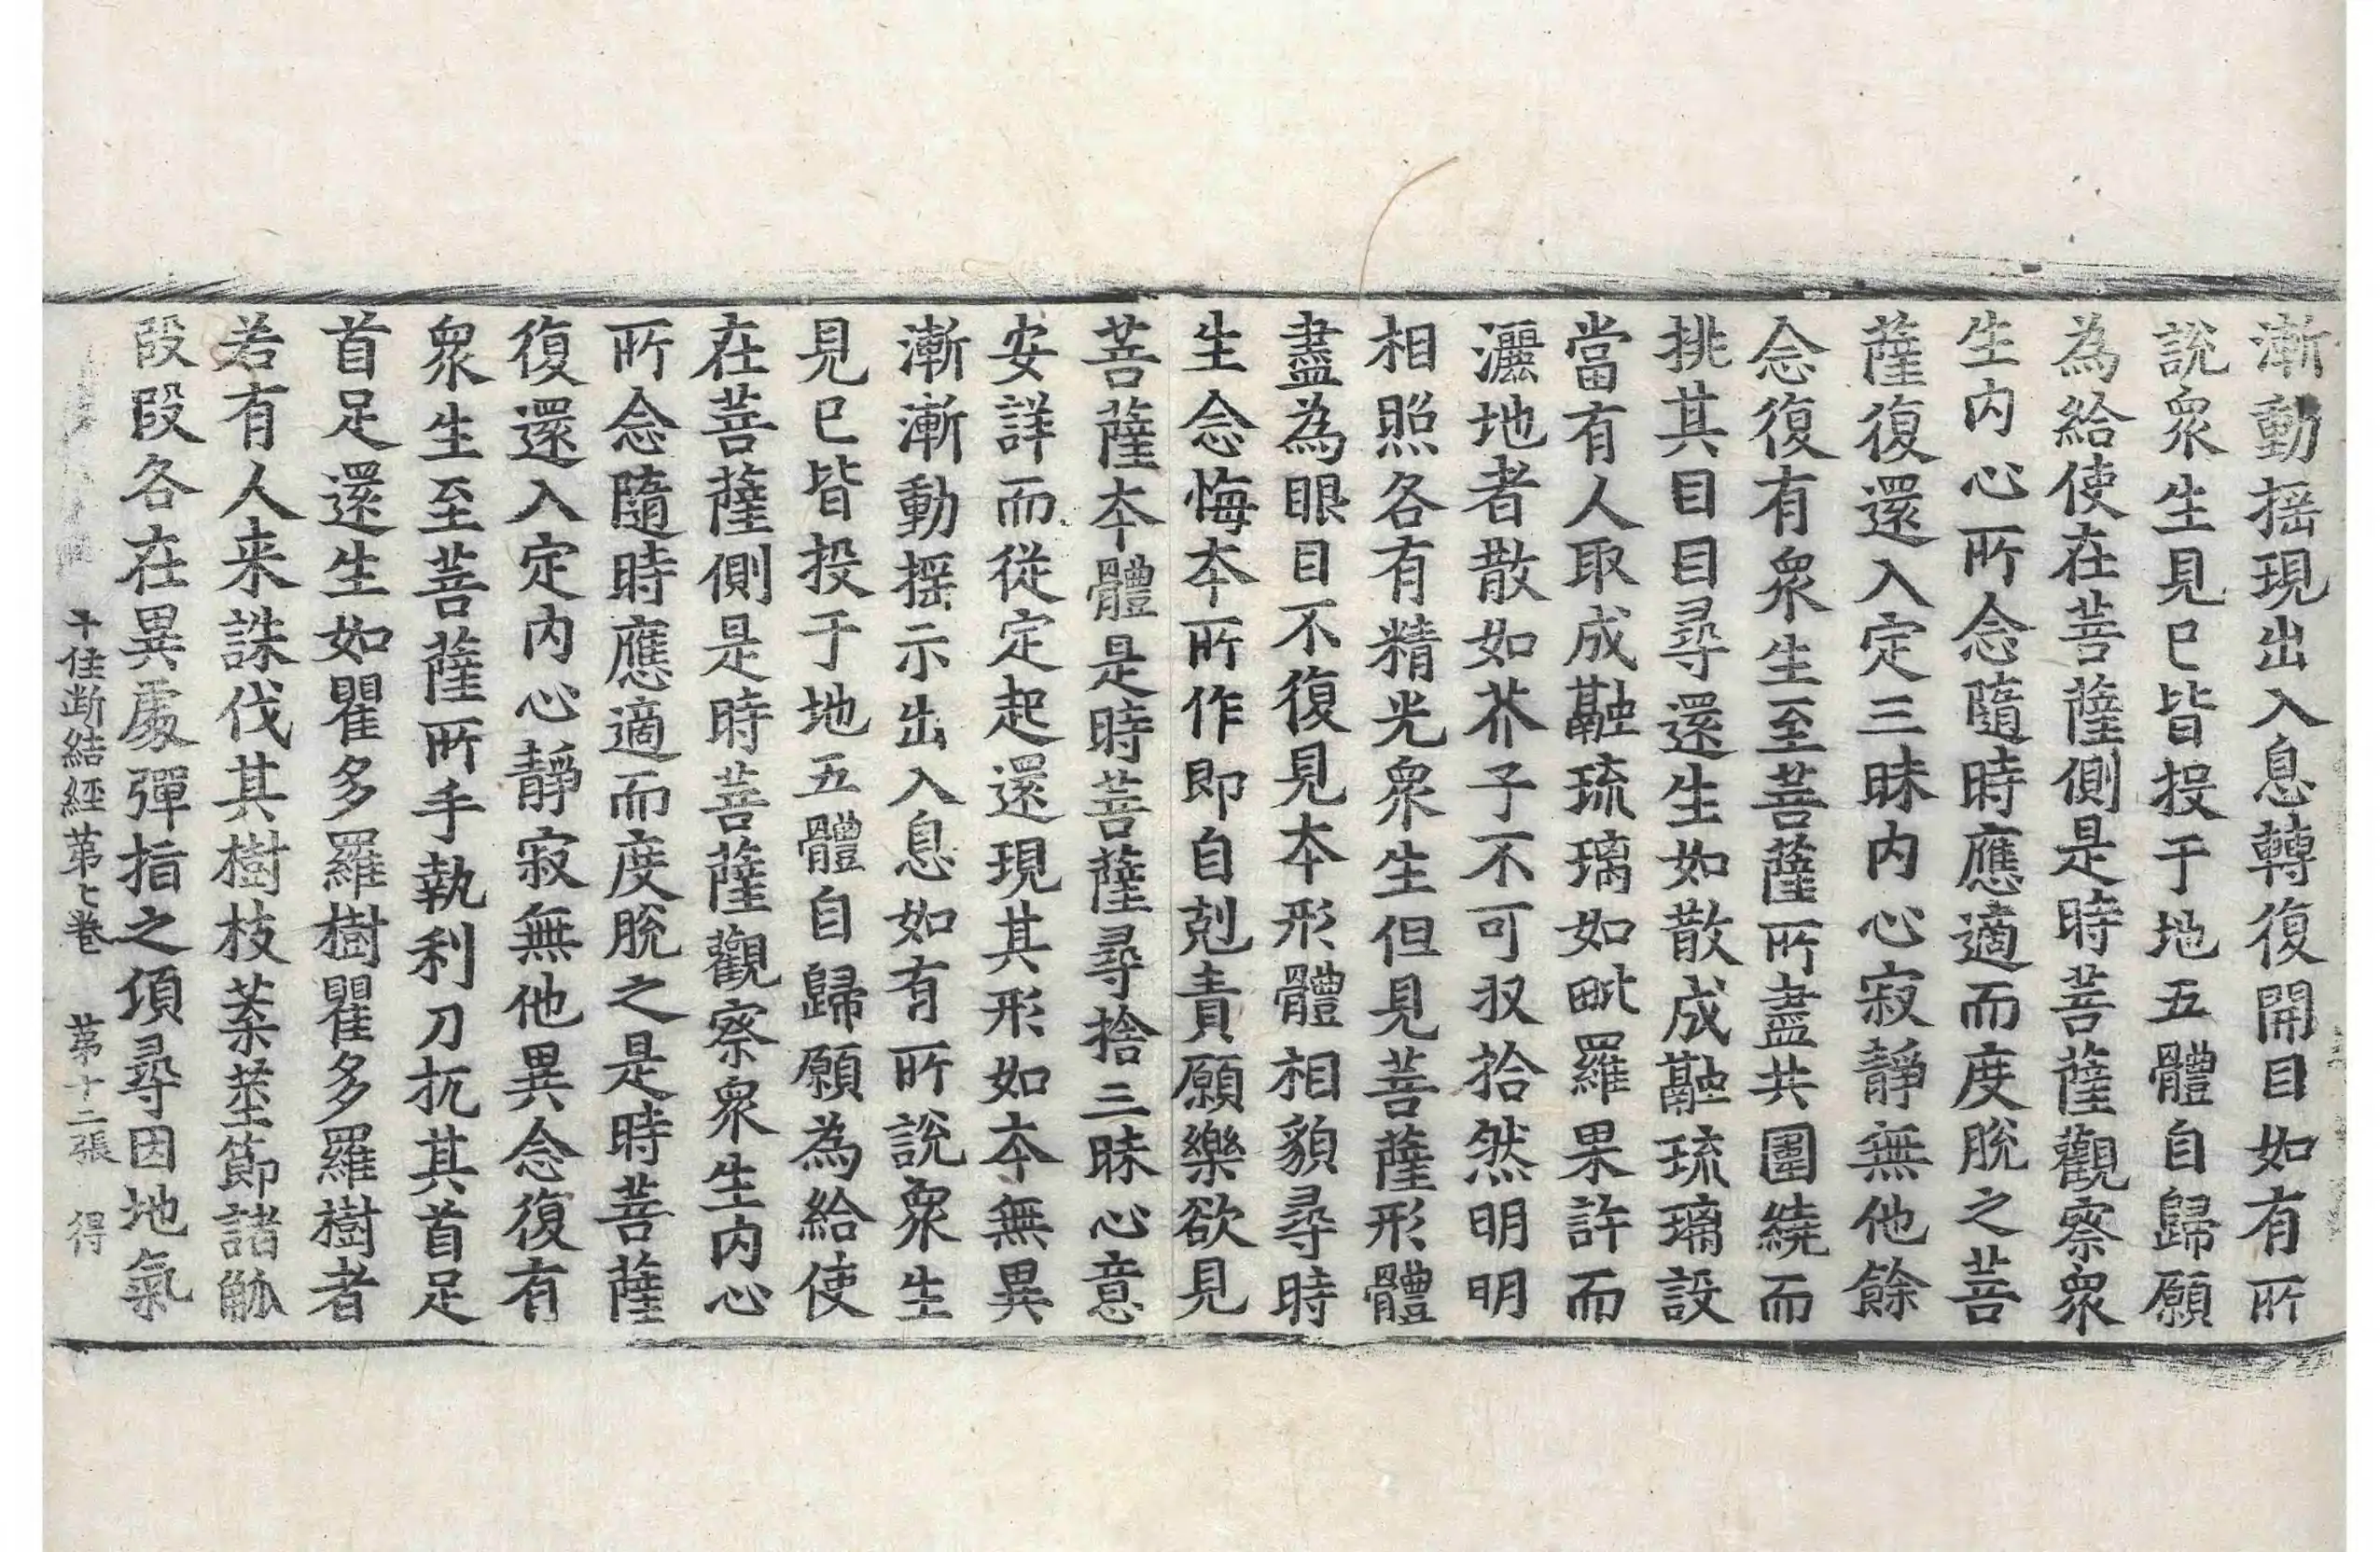 漸動揺現出入息轉復開目如有所
說衆生見已皆投于地五體自歸願
為給使在菩薩側是時菩薩觀察衆
生内心所念隨時應適而度脫之菩
薩復還入定三昧内心寂靜無他餘
念復有衆生至菩薩所盡共圍繞而
挑其目目尋還生如散成融琉璃設
當有人取成融琉璃如毗羅果許而
灑地者散如芥子不可収拾然明明
相照各有精光衆生但見菩薩形體
盡為眼目不復見本形體相貌尋時
生念悔本所作即自剋責願樂欲見
菩薩本體是時菩薩尋捨三昧心意
安詳而從定起還現其形如本無異
漸漸動揺示出入息如有所說衆生
見已皆投于地五體自歸願為給使
在菩薩側是時菩薩觀察衆生内心
所念隨時應適而度脫之是時菩薩
復還入定内心靜寂無他異念復有
衆生至菩薩所手執利刀抓其首足
首足還生如瞿多羅樹瞿多羅樹者
若有人来誅伐其樹枝葉莖節諸觚
段段各在異處彈指之頃尋因地氣
十住断結経苐七巻 苐十二張 得